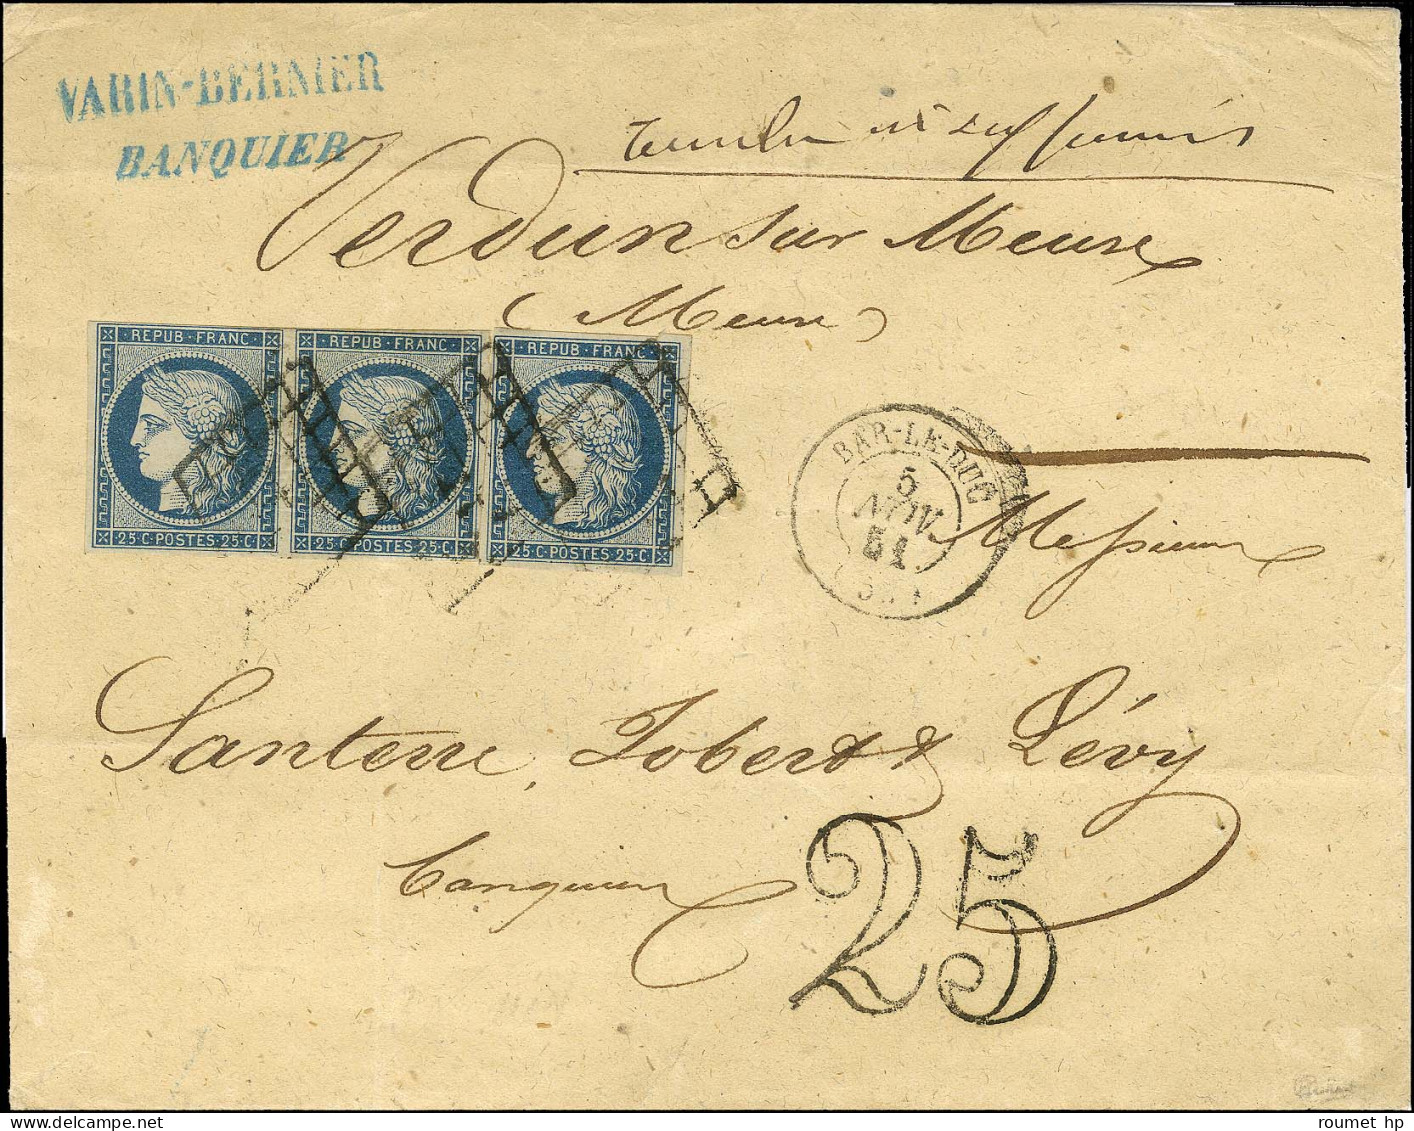 VARIN-BERNIER
BANQUIER
Verdun sur Meuse
(Meuse)
REPUB·FRANC·
REPUB·FRANC·
REPUB·FRANC·
25·C·POSTES·25·C·
25·C·POSTES·25·C·
25·C·POSTES·25·C·
BAR-LE-DUC
5
NOV.
51
Messieurs
Santerre, Jobert & Lévy
banquiers
25
roumet hp